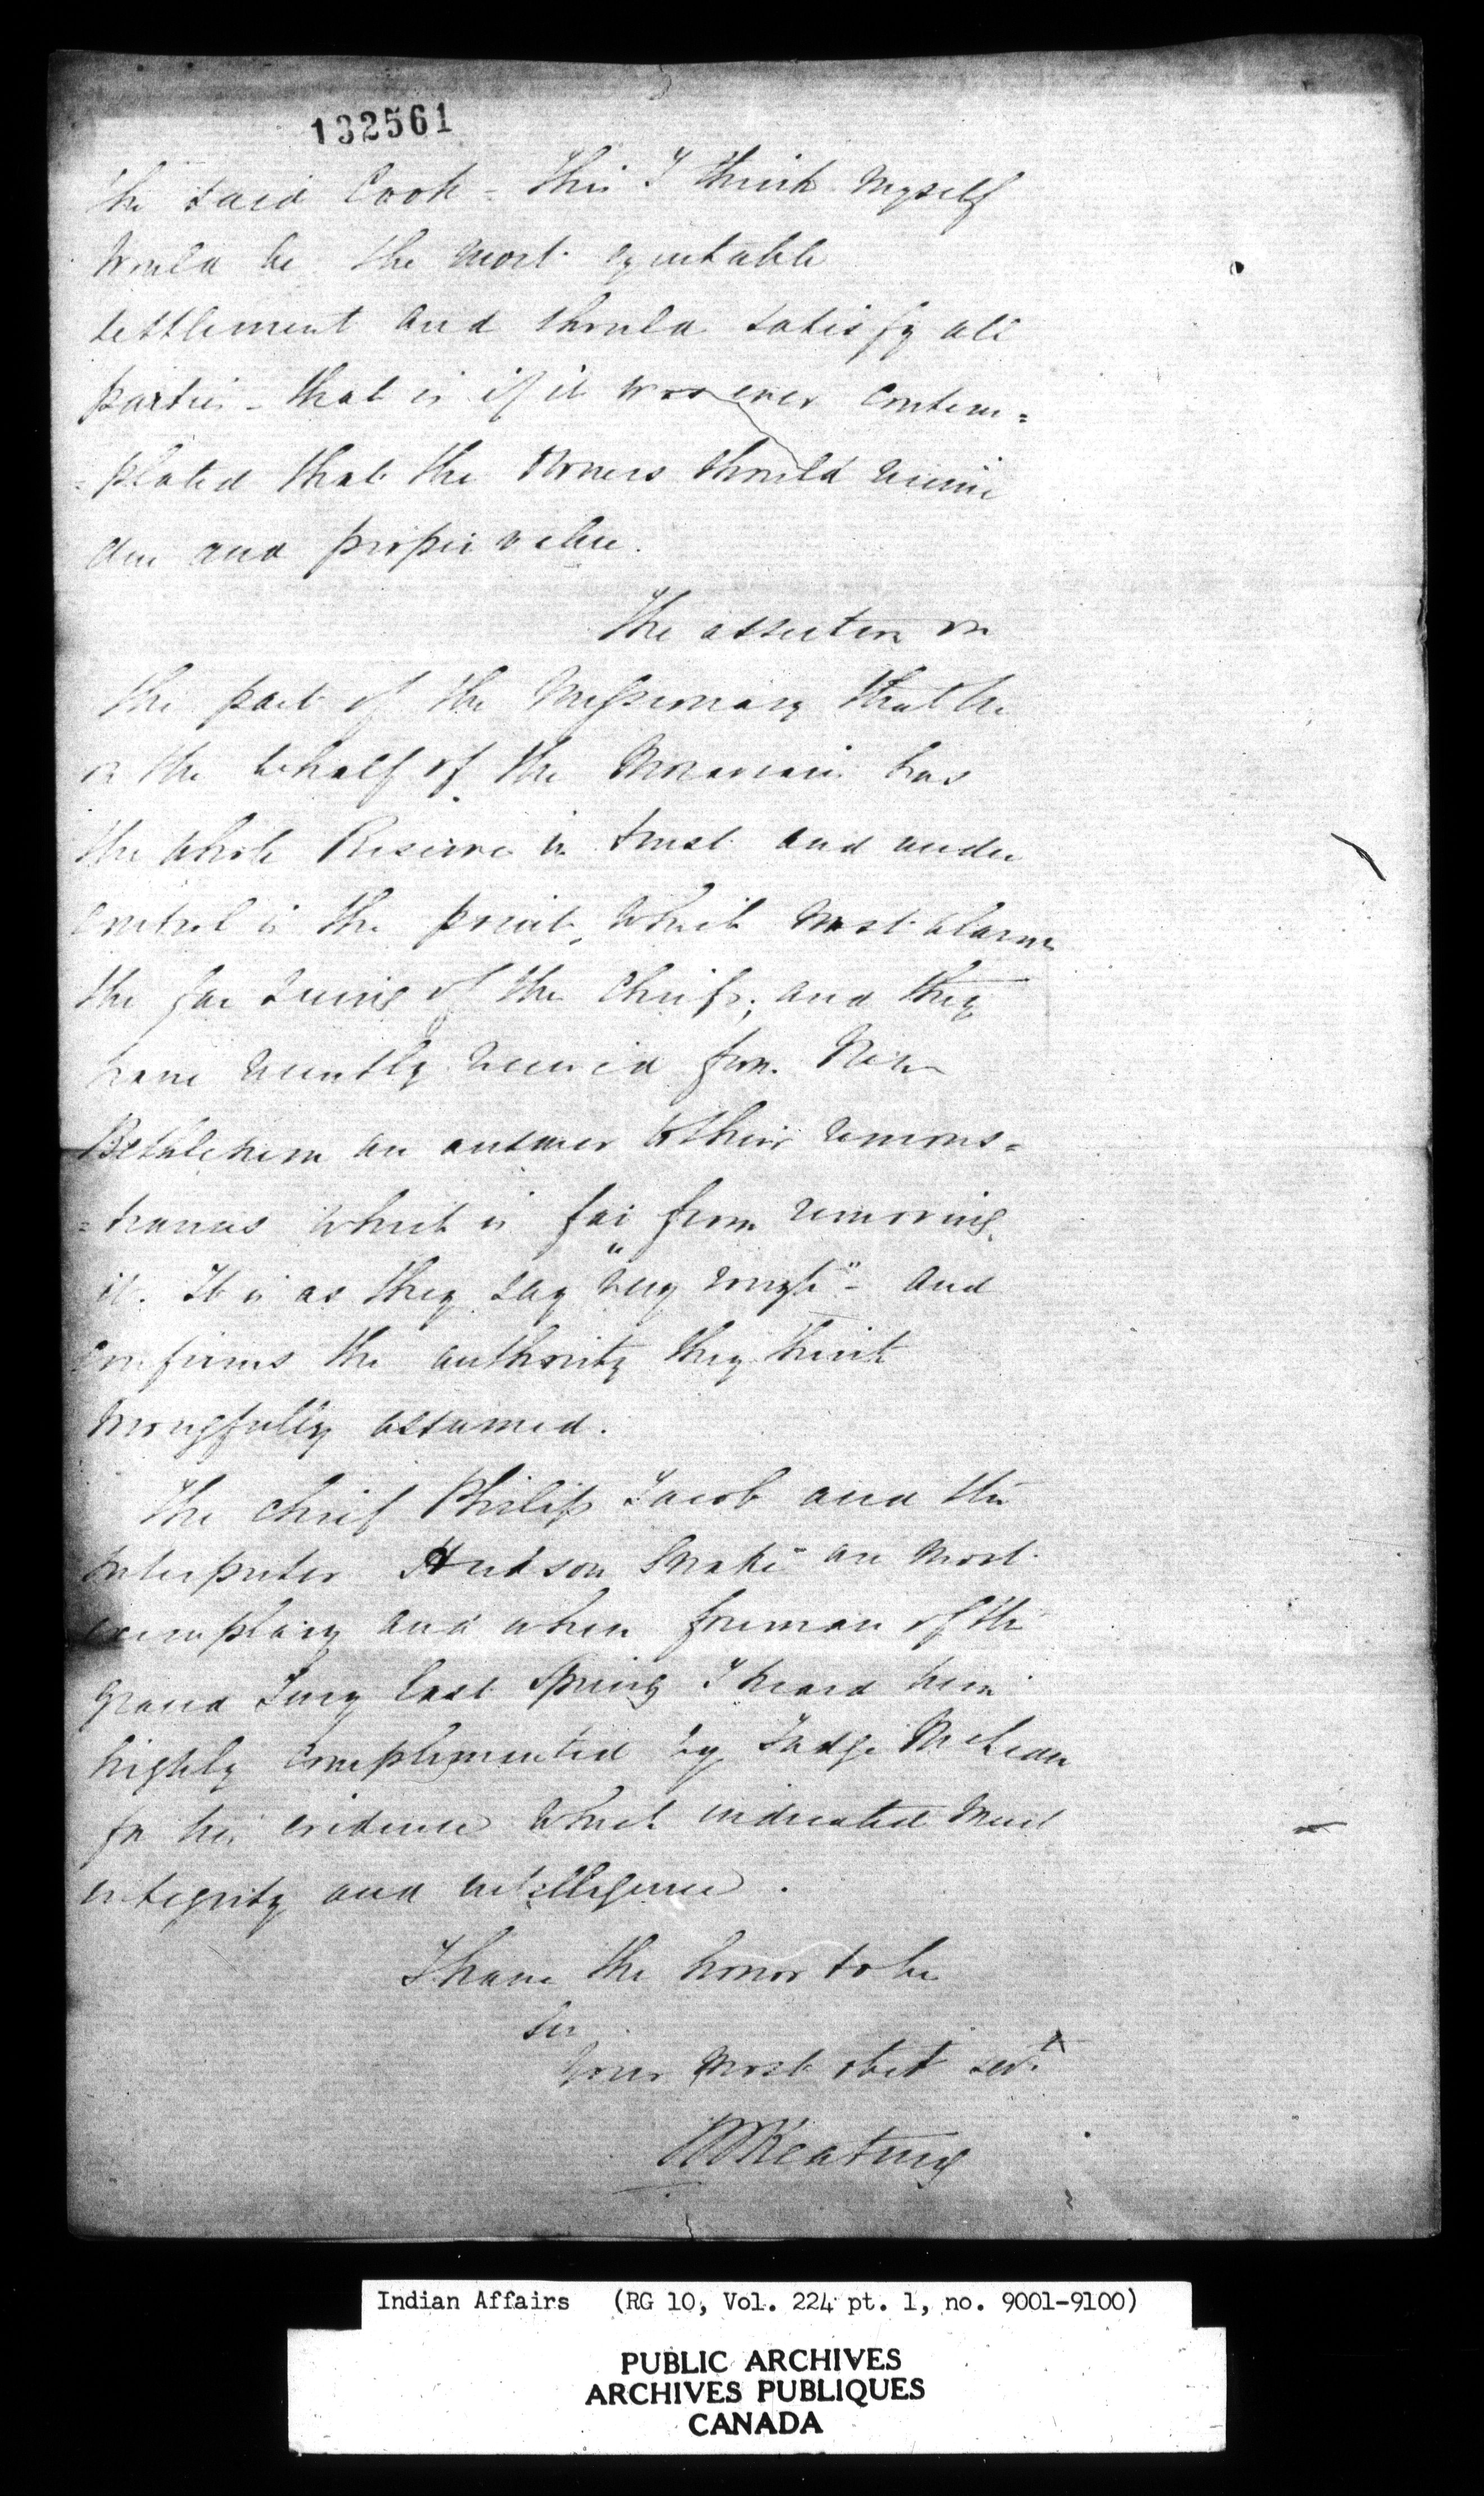 132561
the said Cook - this I think myself
would be the most equitable
settlement and should satisfy all
parties - that is if it was ever contem=
=plated that the owners should receive
due and proper value.
The assertion on
the part of the Missionary that he
on the behalf of the Moravians has
the whole Reserve in trust and under
control is the point, which most alarms
the far seeing of the Chiefs; and they
have recently received from New
Bethlehem an answer to their remons=
=trances which is far from removing
it. It is as they say "very rough" - and
confirms the authority they think
wrongfully assumed.
The chief Philip Jacob and the
interpreter Hudson Snake are most
exemplary and when foreman of the
Grand Jury last Spring I heard him
highly complimented by Judge McLean
for his evidence which indicated much
integrity and intelligence.
I have the honor to be
Sir
Your most obdt servt
Keating
Indian Affairs (RG 10, Vol. 224 pt. 1, no. 9001-9100)
PUBLIC ARCHIVES
ARCHIVES PUBLIQUES
CANADA